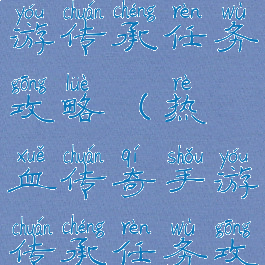 yóu chuán chéng rèn wù
游传承任务
gōng lüè rè
攻略(热
xuě chuán qí shǒu yóu
血传奇手游
chuán chéng rèn wù gōng
传承任务攻